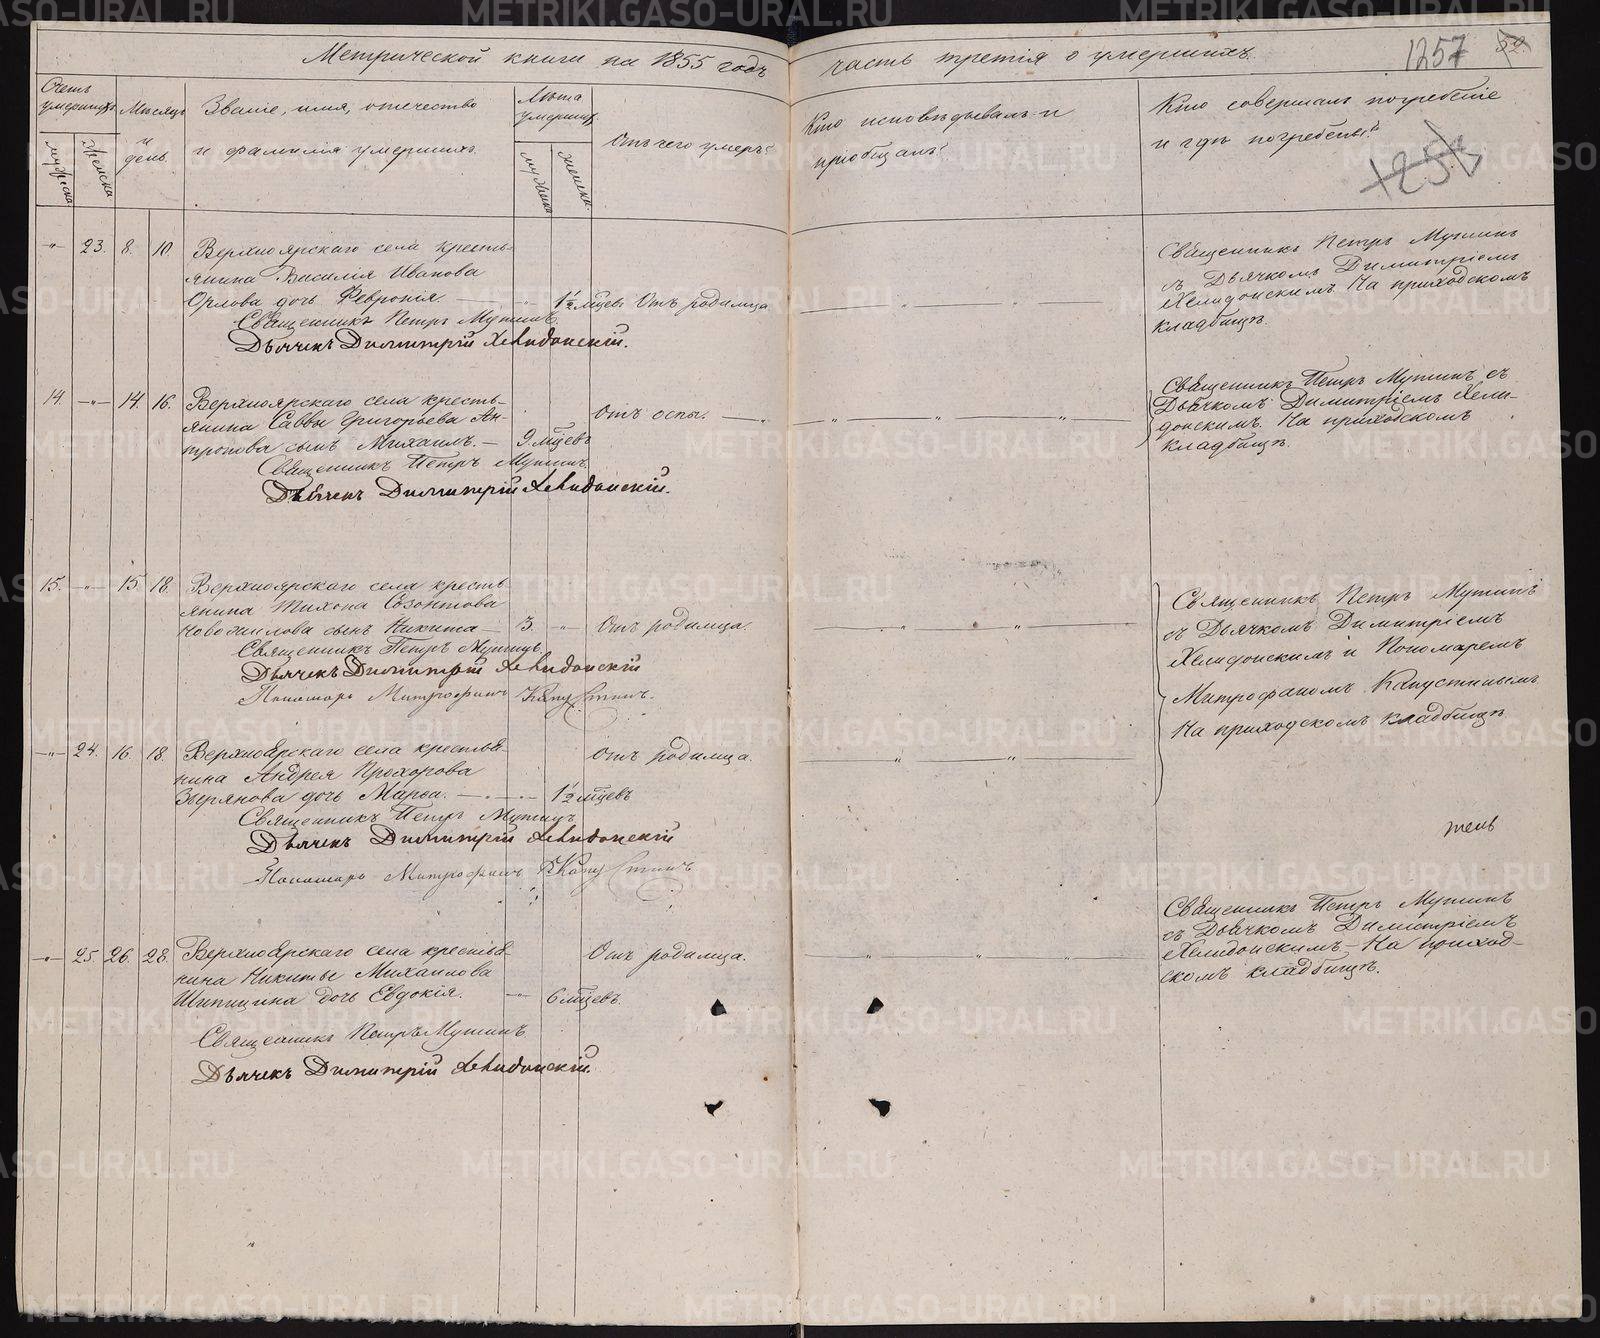 Метрической книги на 1855 годъ
часть третія о умершихъ.
1257
52
Счетъ умершихъ
мужеска
женска
Мѣсяцъ и день.
Званіе, имя, отечество
и фамилія умершихъ.
Лѣта умершихъ
мужеска
женска.
Отъ чего умеръ?
Кто исповѣдывалъ и
пріобщалъ?
Кто совершалъ погребеніе
и гдѣ погребены?
1257
-"- 23. 8. 10. Верхноярскаго села кресть-
янина Василія Иванова
Орлова дочь Февронія. — " 1½ мцев. Отъ родимца
Священникъ Петръ Мутинъ.
Дьячекъ Димитрій Хелидонскій.
Священникъ Петръ Мутинъ
съ Дьячкомъ Димитріемъ
Хелидонскимъ. На приходскомъ
кладбищѣ.
14. -"- 14. 16. Верхноярскаго села кресть-
янина Саввы Григорьева Ан-
тропова сынъ Михаилъ. — 9. мцевъ Отъ оспы.
Священникъ Петръ Мутинъ.
Дьячекъ Димитрій Хелидонскій.
Священникъ Петръ Мутинъ съ
Дьячкомъ Димитріемъ Хели-
донскимъ. На приходскомъ
кладбищѣ.
15. -"- 15 18. Верхноярскаго села кресть-
янина Тихона Созонтова
Новоаилова сынъ Никита — 3. -"- Отъ родимца.
Священникъ Петръ Мутинъ.
Дьячекъ Димитрій Хелидонскій
Пономарь Митрофанъ Капустинъ.
Священникъ Петръ Мутинъ
съ Дьячкомъ Димитріемъ
Хелидонскимъ и Пономаремъ
Митрофаномъ Капустинымъ
На приходскомъ кладбищѣ
-"- 24. 16 18. Верхноярскаго села крестья-
нина Андрея Прохорова
Зырянова дочь Марѳа. — " — 1½ мцевъ Отъ родимца.
Священникъ Петръ Мутинъ
Дьячекъ Димитрій Хелидонскій
Пономарь Митрофанъ Капустинъ
тель
-"- 25. 26. 28. Верхноярскаго села крестья-
нина Никиты Михаилова
Шипицина дочь Евдокія. -"- 6 мцевъ. Отъ родимца.
Священникъ Петръ Мутинъ
Дьячекъ Димитрій Хелидонскій.
Священникъ Петръ Мутинъ
съ Дьячкомъ Димитріемъ
Хелидонскимъ — На приход-
скомъ кладбищѣ.
METRIKI.GASO-URAL.RU